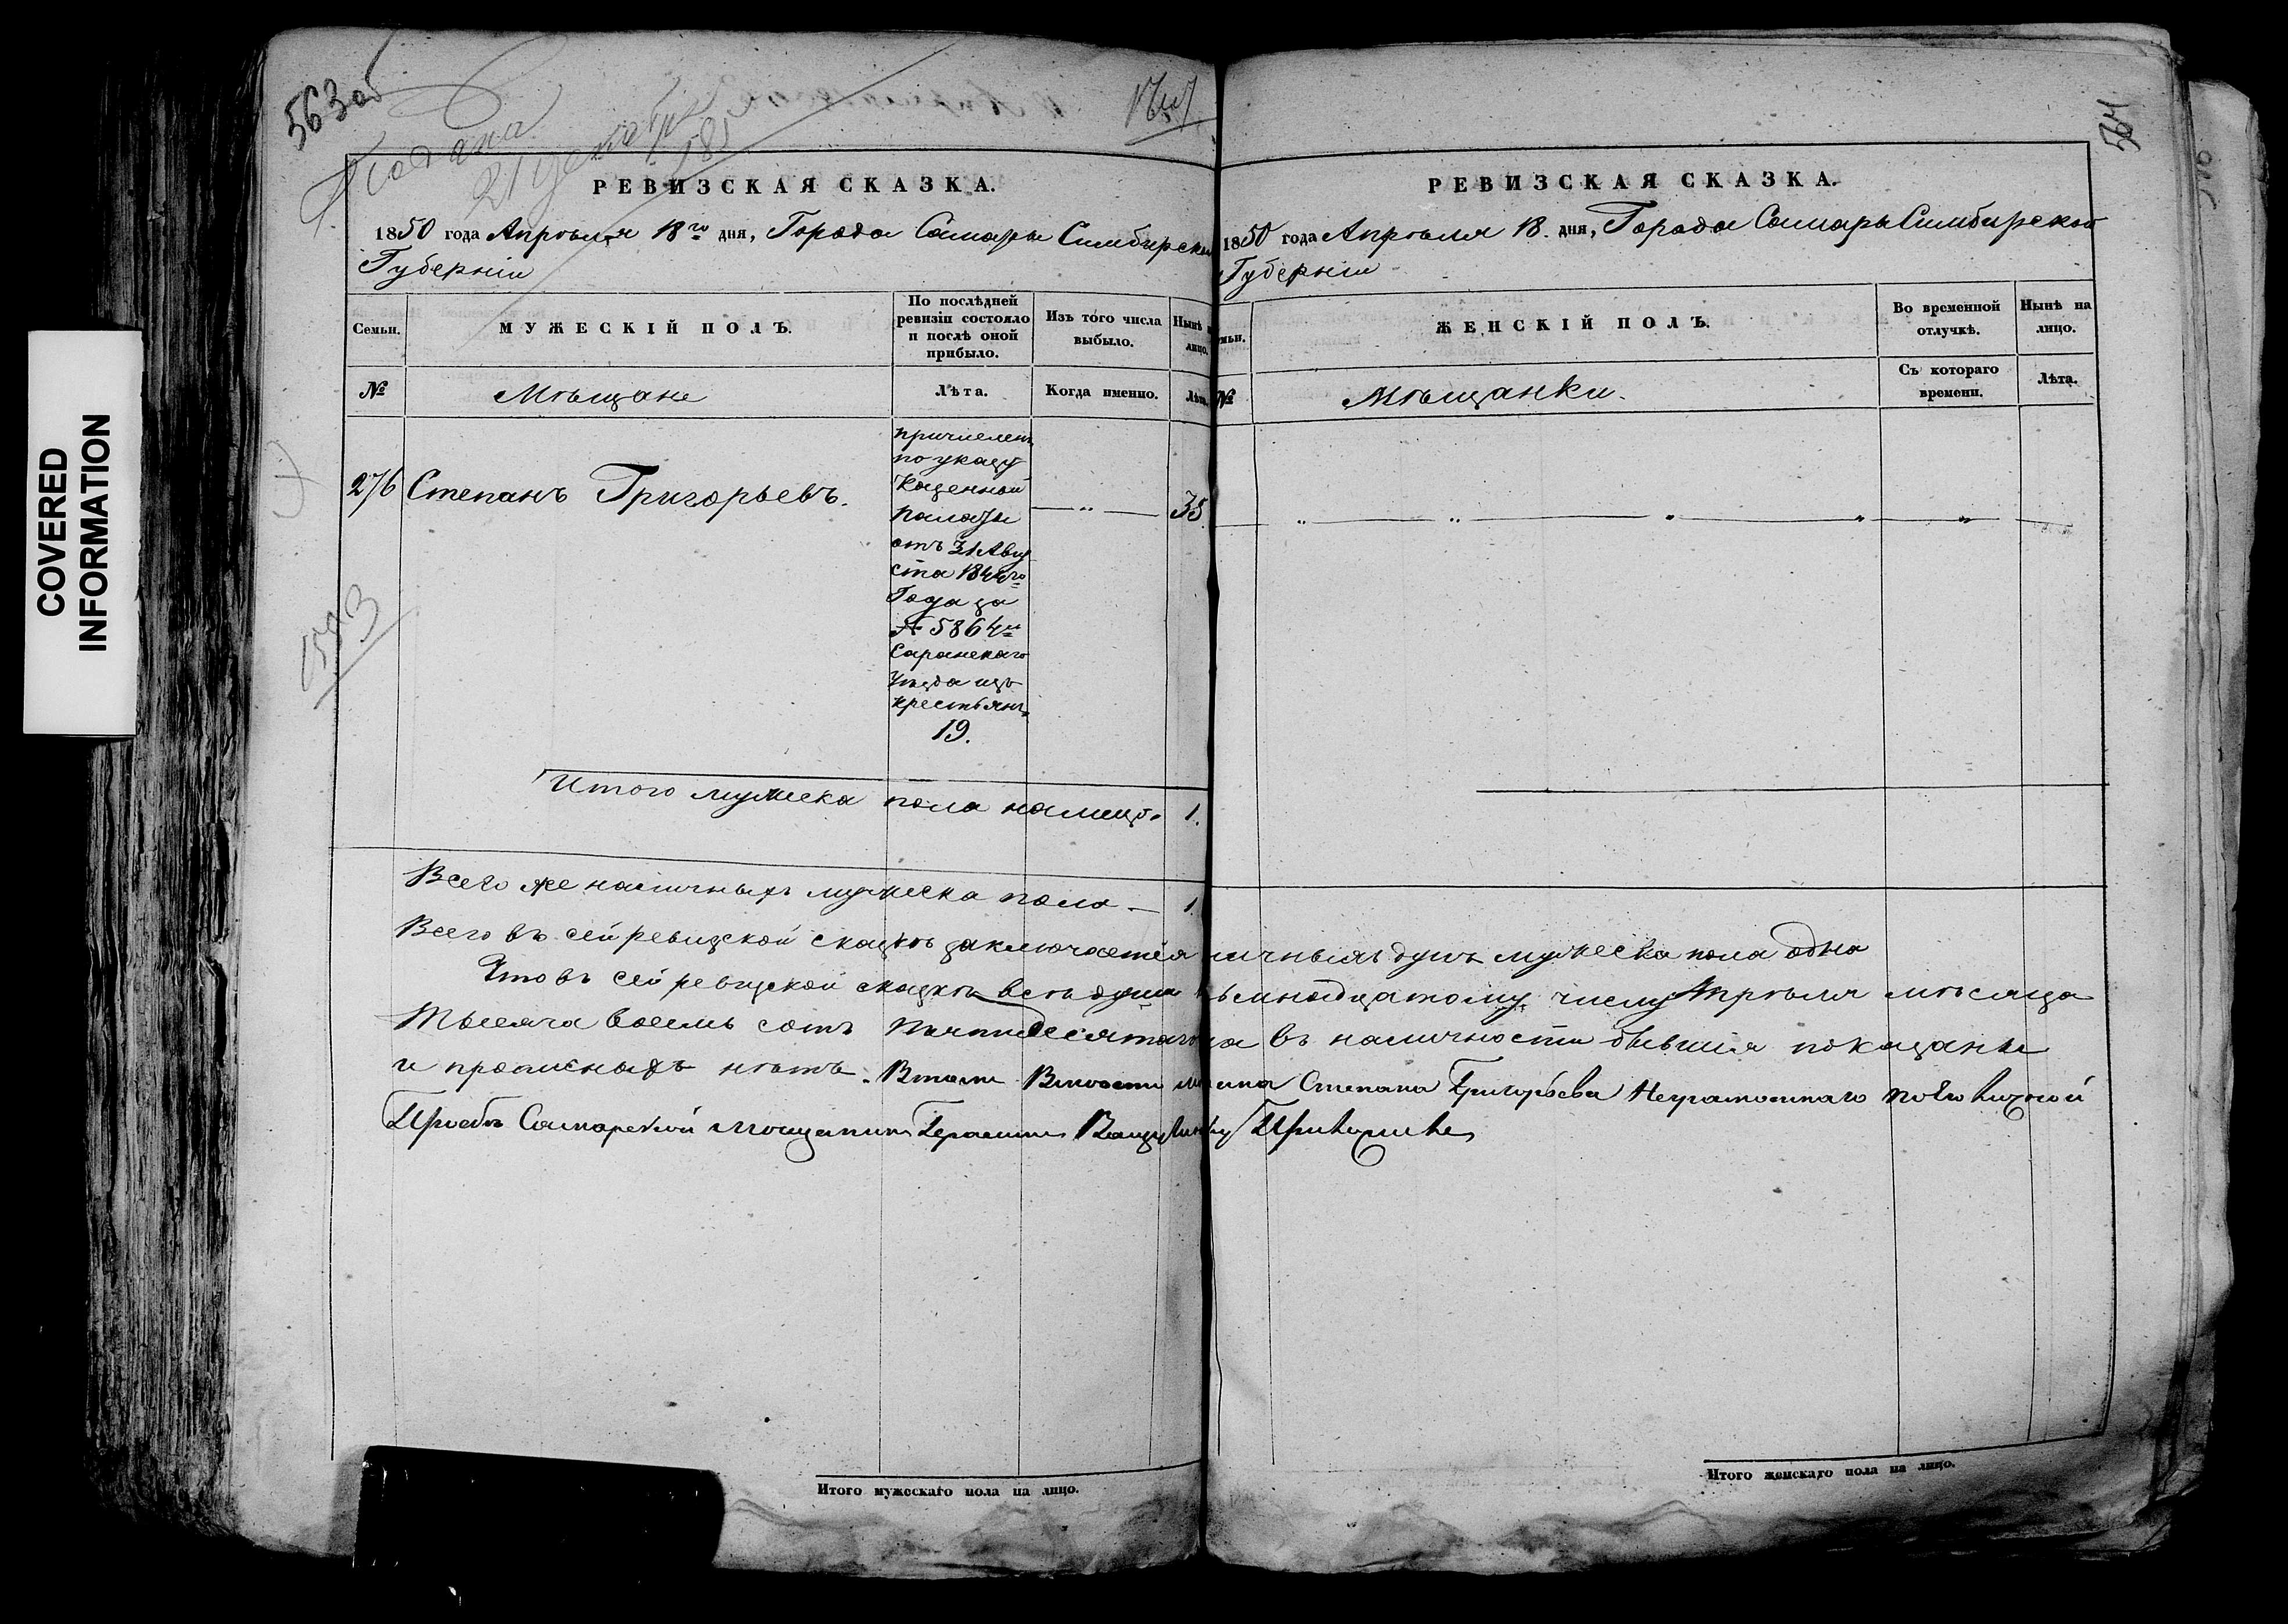 COVERED
INFORMATION
563 об
Подана
21 декабря
185
РЕВИЗСКАЯ СКАЗКА.
1850 года Апрѣля 18го дня, Города Самары Симбирской
Губерніи
Семьи.
МУЖЕСКІЙ ПОЛЪ.
По послѣдней
ревизіи состояло
и послѣ оной
прибыло.
Изъ того числа
выбыло.
Нынѣ н
лицо.
№
Мѣщане
Лѣта.
Когда именно.
Лѣта
276 Степанъ Григорьевъ.
причисленъ
по указу
Казенной
Палаты
отъ 31 Авгу
ста 1844го
Года за
№ 5864м
Саранскаго
Уѣзда изъ
крестьянъ
19.
— „ —
35
Итого мужеска пола налицо. 1.
Всего же наличныхъ мужеска пола — 1.
Всего въ сей ревизской сказкѣ заключается
Что въ сей ревизской сказкѣ всѣ души
Тысяча восемь сотъ пятидесятаго
и прописныхъ нѣтъ.
Прозбѣ Самарской мещанинъ Герасимъ
Итого мужескаго пола на лицо.
564
РЕВИЗСКАЯ СКАЗКА.
1850 года Апрѣля 18. дня, Города Самары Симбирской
Губерніи
мьи.
ЖЕНСКІЙ ПОЛЪ.
Во временной
отлучкѣ.
Нынѣ на
лицо.
№
Мѣщанки.
Съ котораго
времени.
Лѣта.
личныхъ душъ мужеска пола одна
ьмнадцатому числу Апрѣля мѣсяца
да въ наличности бывшія показаны
Степана Григорьева Неграмотнаго по его личной
Итого женскаго пола на лицо.